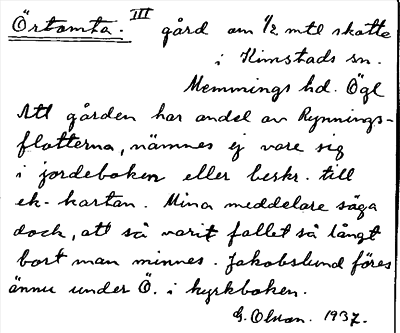 Örtomta. III gård om 1/2 mtl skatte
i Kimstads sn.
Memmings hd. Ögl
Att gården har andel av Rynnings-
flotterna, nämnes ej vare sig
i jordeboken eller beskr. till
ek-kartan. Mina meddelare säga
dock, att så varit fallet så långt
bort man minnes. Jakobslund föres
ännu under Ö. i kyrkboken.
G. Olson. 1937.